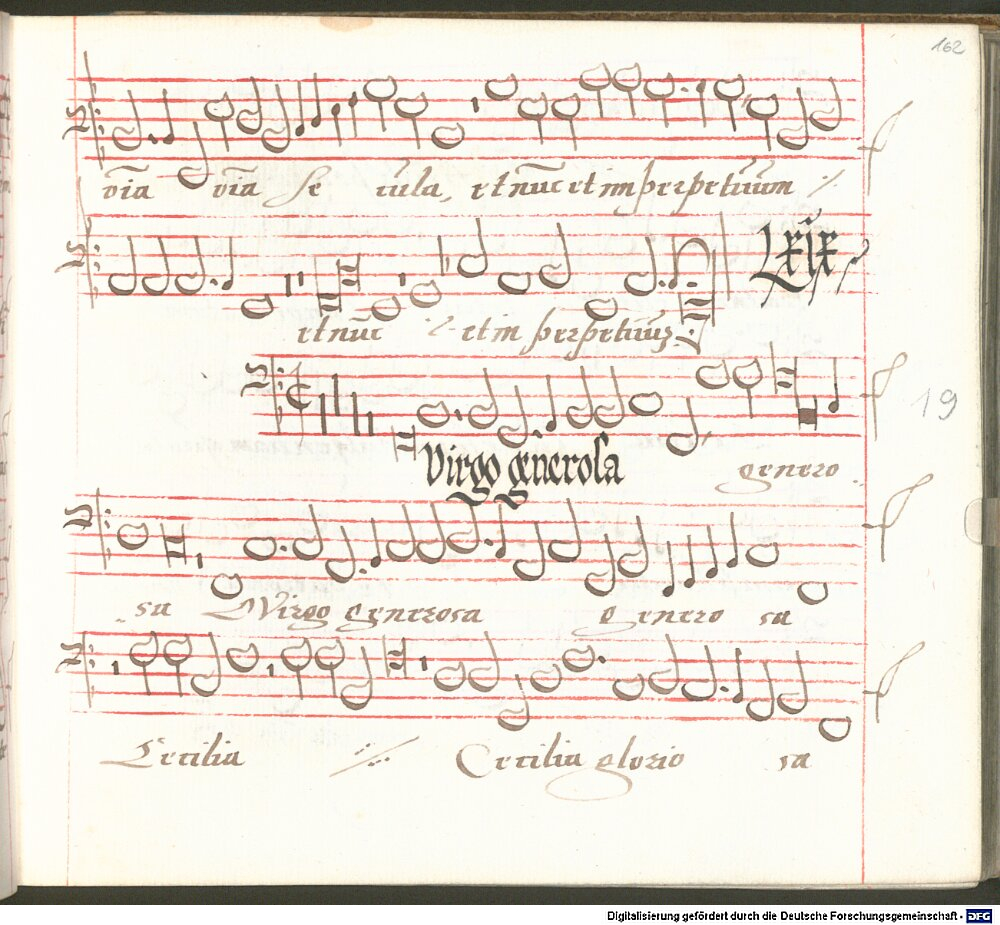 162
oīa oīa se cula, et nūc et im perpetuum ·/.
LXIX
et nūc ·/· et im perpetuuʒ:
19
Virgo generosa genero
sa Virgo generosa genero sa
Cecilia ·//· Cecilia glorio sa
Digitalisierung gefördert durch die Deutsche Forschungsgemeinschaft - DFG